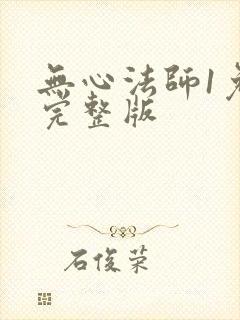 無心法師1
完整版
石俊荣